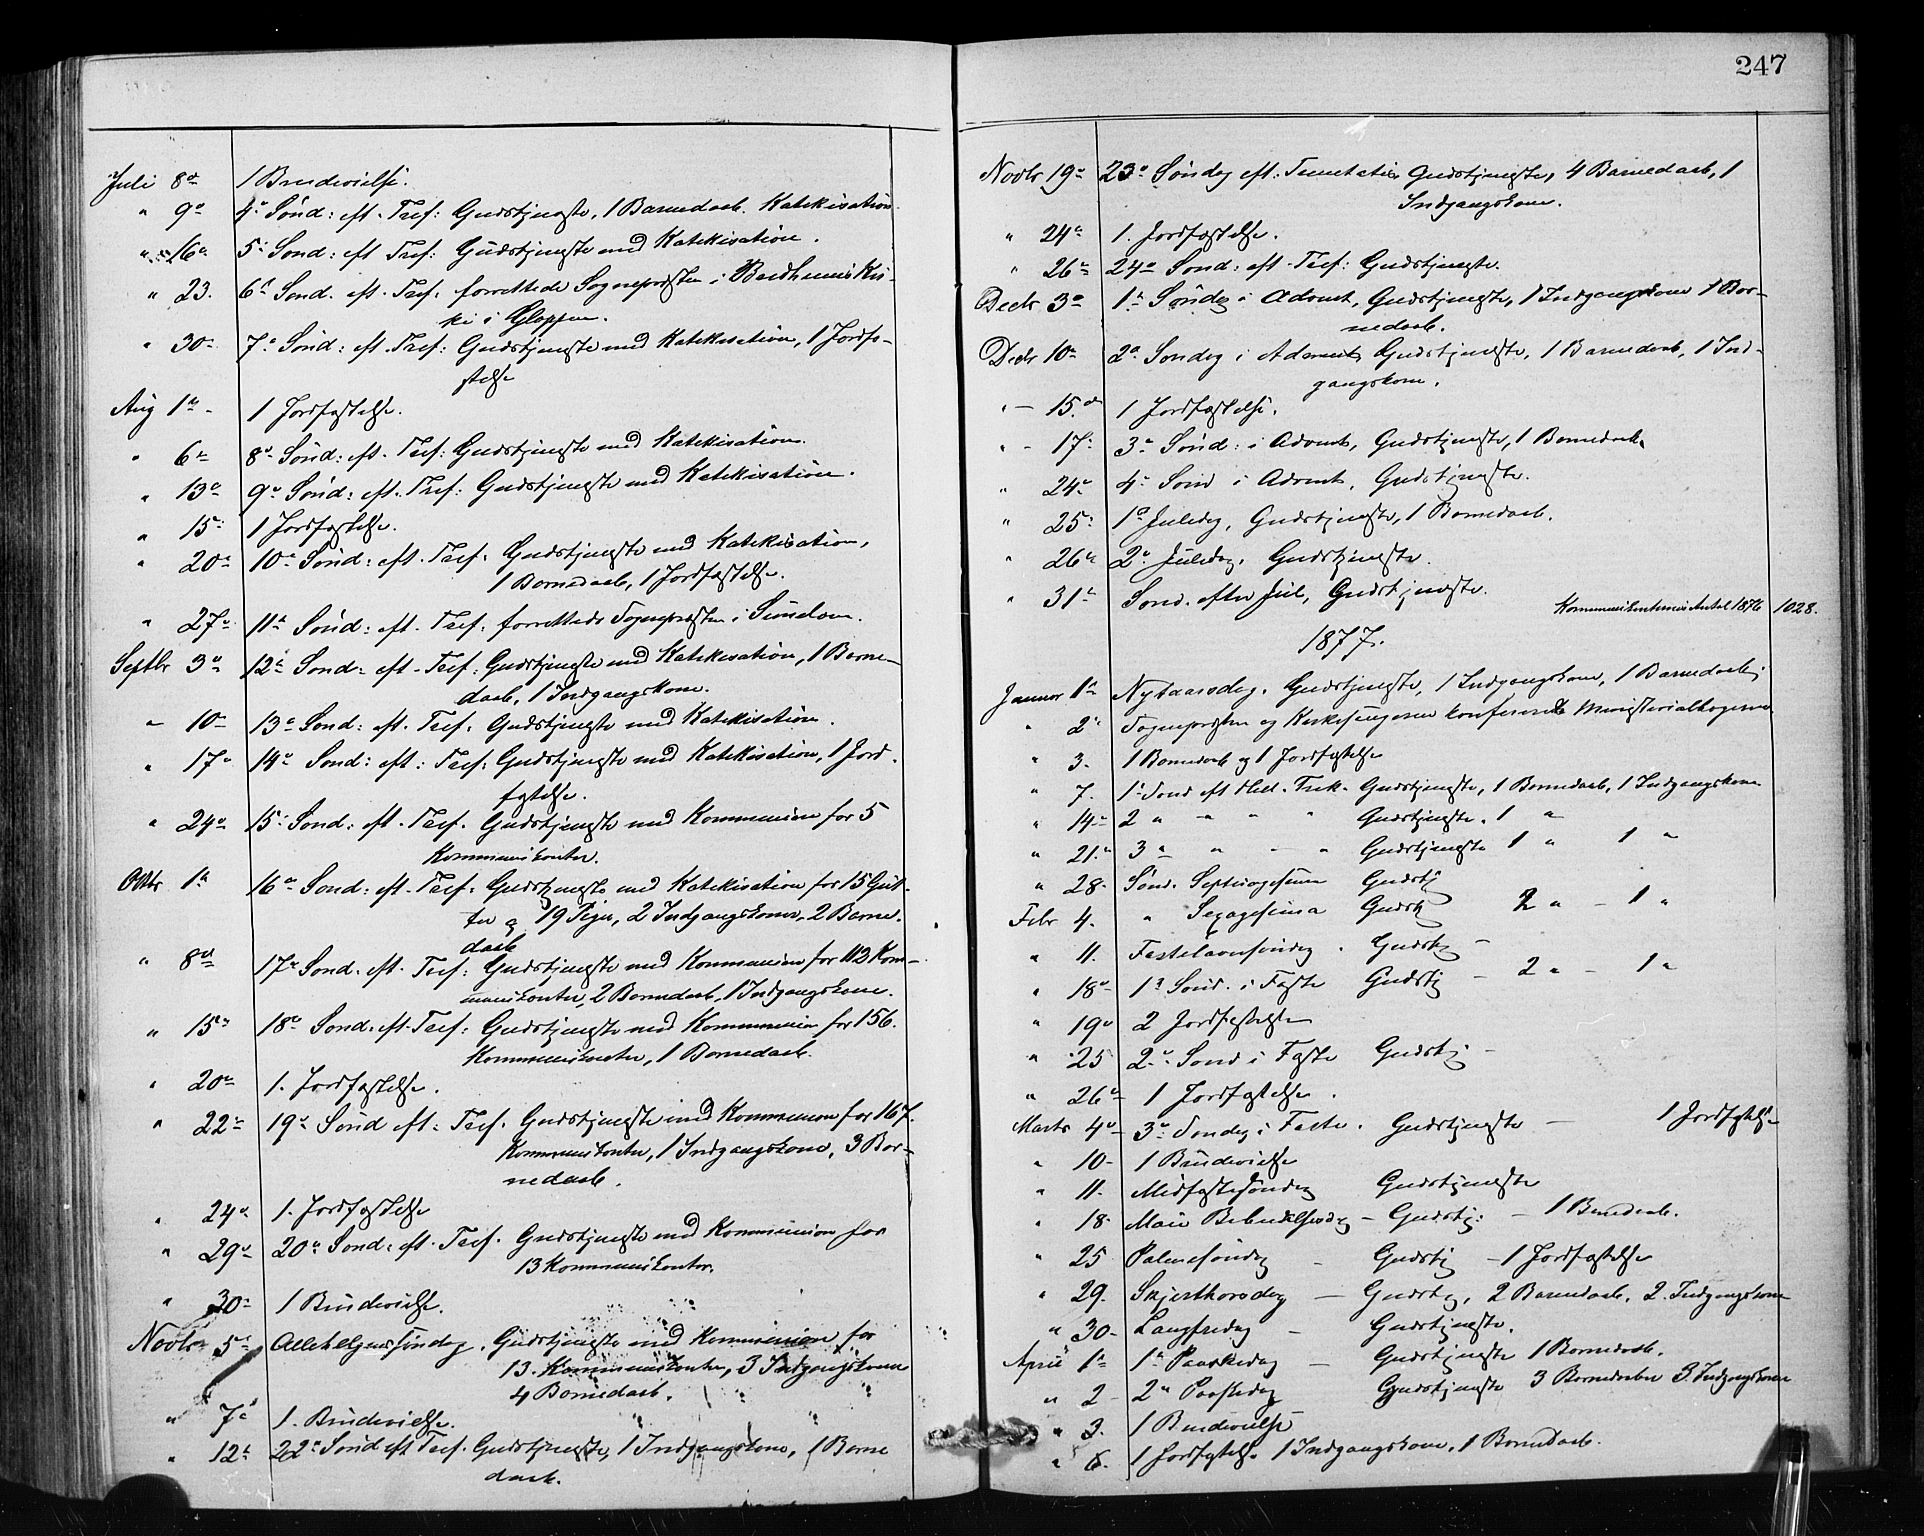 Juli 8de 1 Brudevielse.
" 9de 4de Sönd: eft. Tref: Gudstjeneste, 1 Barnedaab. Katekisation
" 16de 5te Sönd: eft Tref: Gudstjeneste med Katekisation.
" 23. 6te Sönd. eft. Tref. forrettede Sognepresten i Bredheims Kir-
ke i Gloppen.
" 30te 7de Sönd: eft. Tref: Gudstjeneste med Katekisation, 1 Jordfæ-
stelse
Aug 1ste 1 Jordfæstelse.
" 6te 8de Sönd: eft. Tref: Gudstjeneste med Katekisation.
" 13de 9de Sönd: eft. Tref: Gudstjeneste med Katekisation.
" 15de 1 Jordfæstelse.
" 20de 10de Sönd: eft. Tref. Gudstjeneste med Katekisation,
1 Barnedaab, 1 Jordfæstelse.
" 27de 11te Sönd: eft. Tref: forrettede Sognepresten i Sunelven.
Septbr 3de 12te Sönd: eft. Tref: Gudstjeneste med Katekisation, 1 Barne-
daab, 1 Indgangskone.
" 10de 13de Sönd: eft. Tref. Gudstjeneste med Katekisation.
" 17de 14de Sönd: eft: Tref: Gudstjeneste med Katekisation, 1 Jord-
fæstelse.
" 24de 15de Sönd: eft. Tref. Gudstjeneste med Kommunion for 5
Kommunikanter.
Octbr 1ste 16de Sönd: eft. Tref: Gudstjeneste med Katekisation for 15 Gut-
ter og 19 Piger, 2 Indgangskoner, 2 Barne-
daab
" 8de 17de Sönd. eft. Tref: Gudstjeneste med Kommunion for 112 Kom-
munikanter, 2 Barnedaab, 1 Indgangskone.
" 15de 18de Sönd. eft. Tref: Gudstjeneste med Kommunion for 156.
Kommunikanter, 1 Barnedaab.
" 20de 1. Jordfæstelse.
" 22de 19de Sönd eft: Tref. Gudstjeneste med Kommunion for 167.
Kommunikanter, 1 Indgangskone, 3 Bar-
nedaab.
" 24de 1. Jordfæstelse
" 29de 20de Sönd: eft. Tref. Gudstjeneste med Kommunion for
13 Kommunikanter.
" 30te 1 Brudevielse.
Novbr 5te Allehelgenssöndag. Gudstjeneste med Kommunion for
13. Kommunikanter, 3 Indgangskoner
4 Barnedaab.
" 7de 1. Brudevielse.
" 12te 22de Sönd eft Tref. Gudstjeneste, 1 Indgangskone, 1 Barne
daab.
247
Novbr 19de 23de Söndag eft: Trinitatis Gudstjeneste, 4 Barnedaab, 1
Indgangskone.
" 24de 1. Jordfæstelse.
" 26de 24de Sönd: eft. Tref: Gudstjeneste.
Decbr 3de 1ste Söndag i Advent, Gudstjeneste, 1 Indgangskone 1 Bar-
nedaab.
Decbr 10de 2den Söndag i Advent, Gudstjeneste, 1 Barnedaab, 1 Ind-
gangskone.
" 15de 1 Jordfæstelse.
" 17de 3de Sönd: i Advent, Gudstjeneste, 1 Barnedaab.
" 24de 4de Sönd i Advent, Gudstjeneste.
" 25de 1ste Juledag, Gudstjeneste, 1 Barnedaab.
" 26de 2den Juledag, Gudstjeneste.
" 31te Sönd. efter Jul, Gudstjeneste.
Kommunikanternes Antal 1876 1028.
1877.
Januar 1ste Nytaarsdag. Gudstjeneste, 1 Indgangskone, 1 Barnedaab.
" 2den Sognepresten og Kirkesangeren konfererede Ministerialbøgerne
" 3. 1 Barnedaab og 1 Jordfæstelse
" 7. 1ste Sönd eft Hell. Trek. Gudstjeneste, 1 Barnedaab, 1 Indgangskone
" 14de 2 " " " " Gudstjeneste. 1 "
" 21de 3 " " " " Gudstjeneste 1 " 1 "
" 28. Sönd. Septuagesima Gudstj
Febr 4. " Sexagesima Gudstj 2 " - 1 "
" 11. Fastelavnssöndag. Gudstj -
" 18de 1ste Sönd. i Faste Gudstj - 2 " - 1 "
" 19de 2 Jordfæstelser
" 25 2den Sönd i Faste Gudstj -
" 26de 1 Jordfæstelse.
Marts 4de 3de Söndag i Faste. Gudstjeneste - 1 Jordfæstelse
" 10- 1 Brudevielse
" 11. Midfastesöndag Gudstjeneste
" 18- Mariæ Bebudelsesdag - Gudstj: - 1 Barnedaab.
" 25 Palmesöndag - Gudstj - 1 Jordfæstelse
" 29. Skjærthorsdag - Gudstj, 2 Barnedaab, 2. Indgangskoner
" 30- Langfredag - Gudstjeneste.
April 1ste 1ste Paaskedag - Gudstjeneste 1 Barnedaab.
" 2- 2den Paaskedag Gudstjeneste 3 Barnedaaber 3. Indgangskoner
" 3. 1 Brudevielse
" 6. 1 Jordfæstelse 1 Indgangskone, 1 Barnedaab.